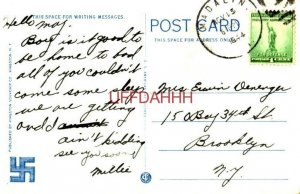 THIS SPACE FOR WRITING
POST CARD
THIS SPACE FOR ADDRESS ONLY
Hello May.
Boy is it good to
be home to bad
all of you couldn't
come some days
we are getting
and I
ain't kidding
see you soon
Millie
Mrs Erwin
150 Bay 34th St.
Brooklyn
N.Y.
1 CENT 1
UFFDAHHH